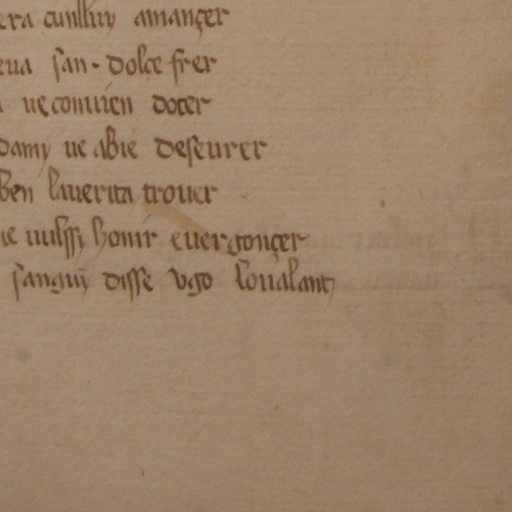 era cunlluy amançer
eua san · dolce frer
ue conuien doter
damj ue abie deseurer
ben lauerita trouer
ie uulssj honir euergonçer
sanguij disse vgo loualant